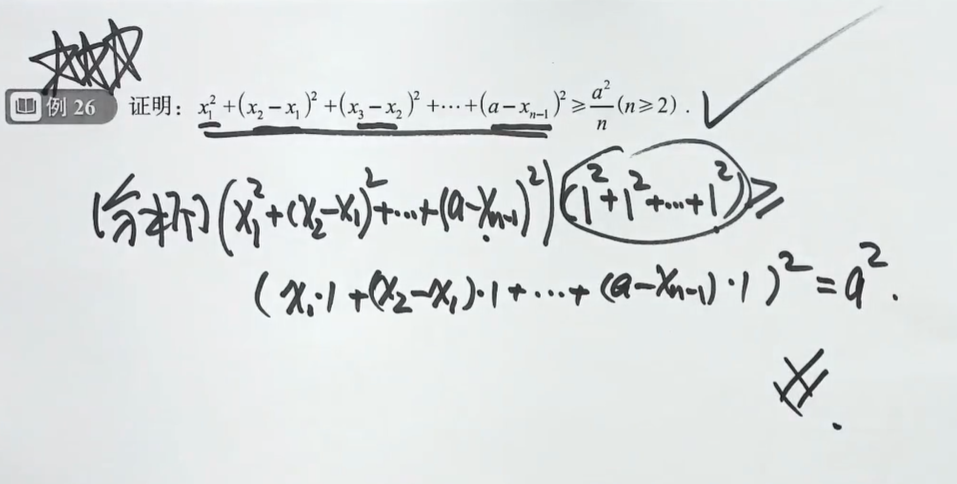 例 26 证明：x₁²+(x₂−x₁)²+(x₃−x₂)²+⋯+(a−xₙ₋₁)²≥a²/n(n≥2).
[分析](x₁²+(x₂−x₁)²+⋯+(a−xₙ₋₁)²)(1²+1²+⋯+1²)≥
(x₁·1+(x₂−x₁)·1+⋯+(a−xₙ₋₁)·1)²=a².